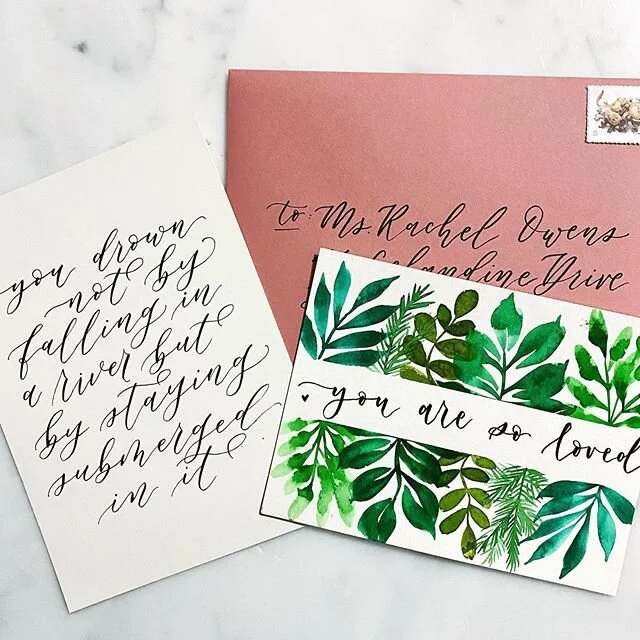 you drown
not by
falling in
a river but
by staying
submerged
in it
to: Ms. Rachel Owens
Drive
you are so loved